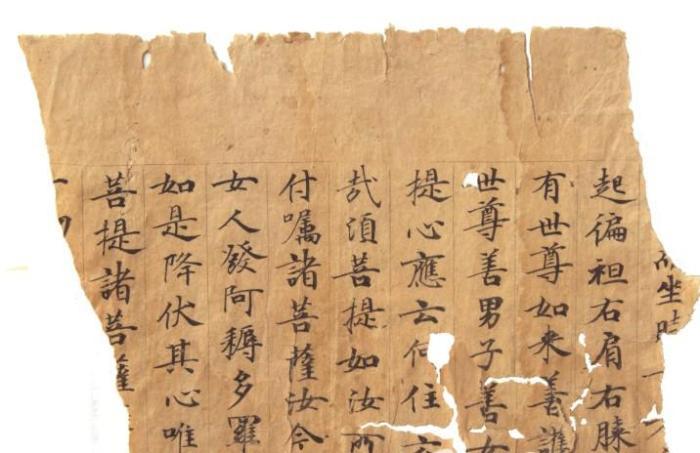 坐時
起徧袒右肩右膝
有世尊如来善護
世尊善男子善女
提心應云何住云
哉須菩提如汝所
付囑諸菩薩汝今
女人發阿耨多羅
如是降伏其心唯
菩提諸菩薩